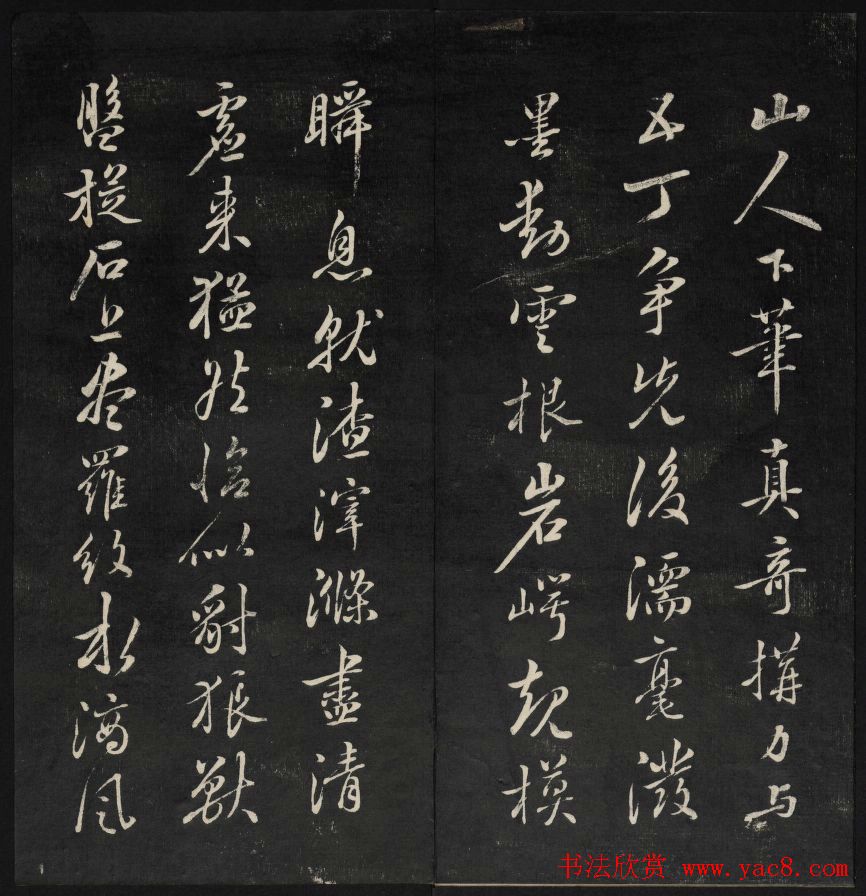 山人下筆真奇搆力与
五丁争先後濡毫潑
墨動雲根岩崿規模
瞬息就渣滓滌盡清
虛来猛然恰似豺狼獸
盤石上羅紋滴風
书法欣赏 www.yac8.com